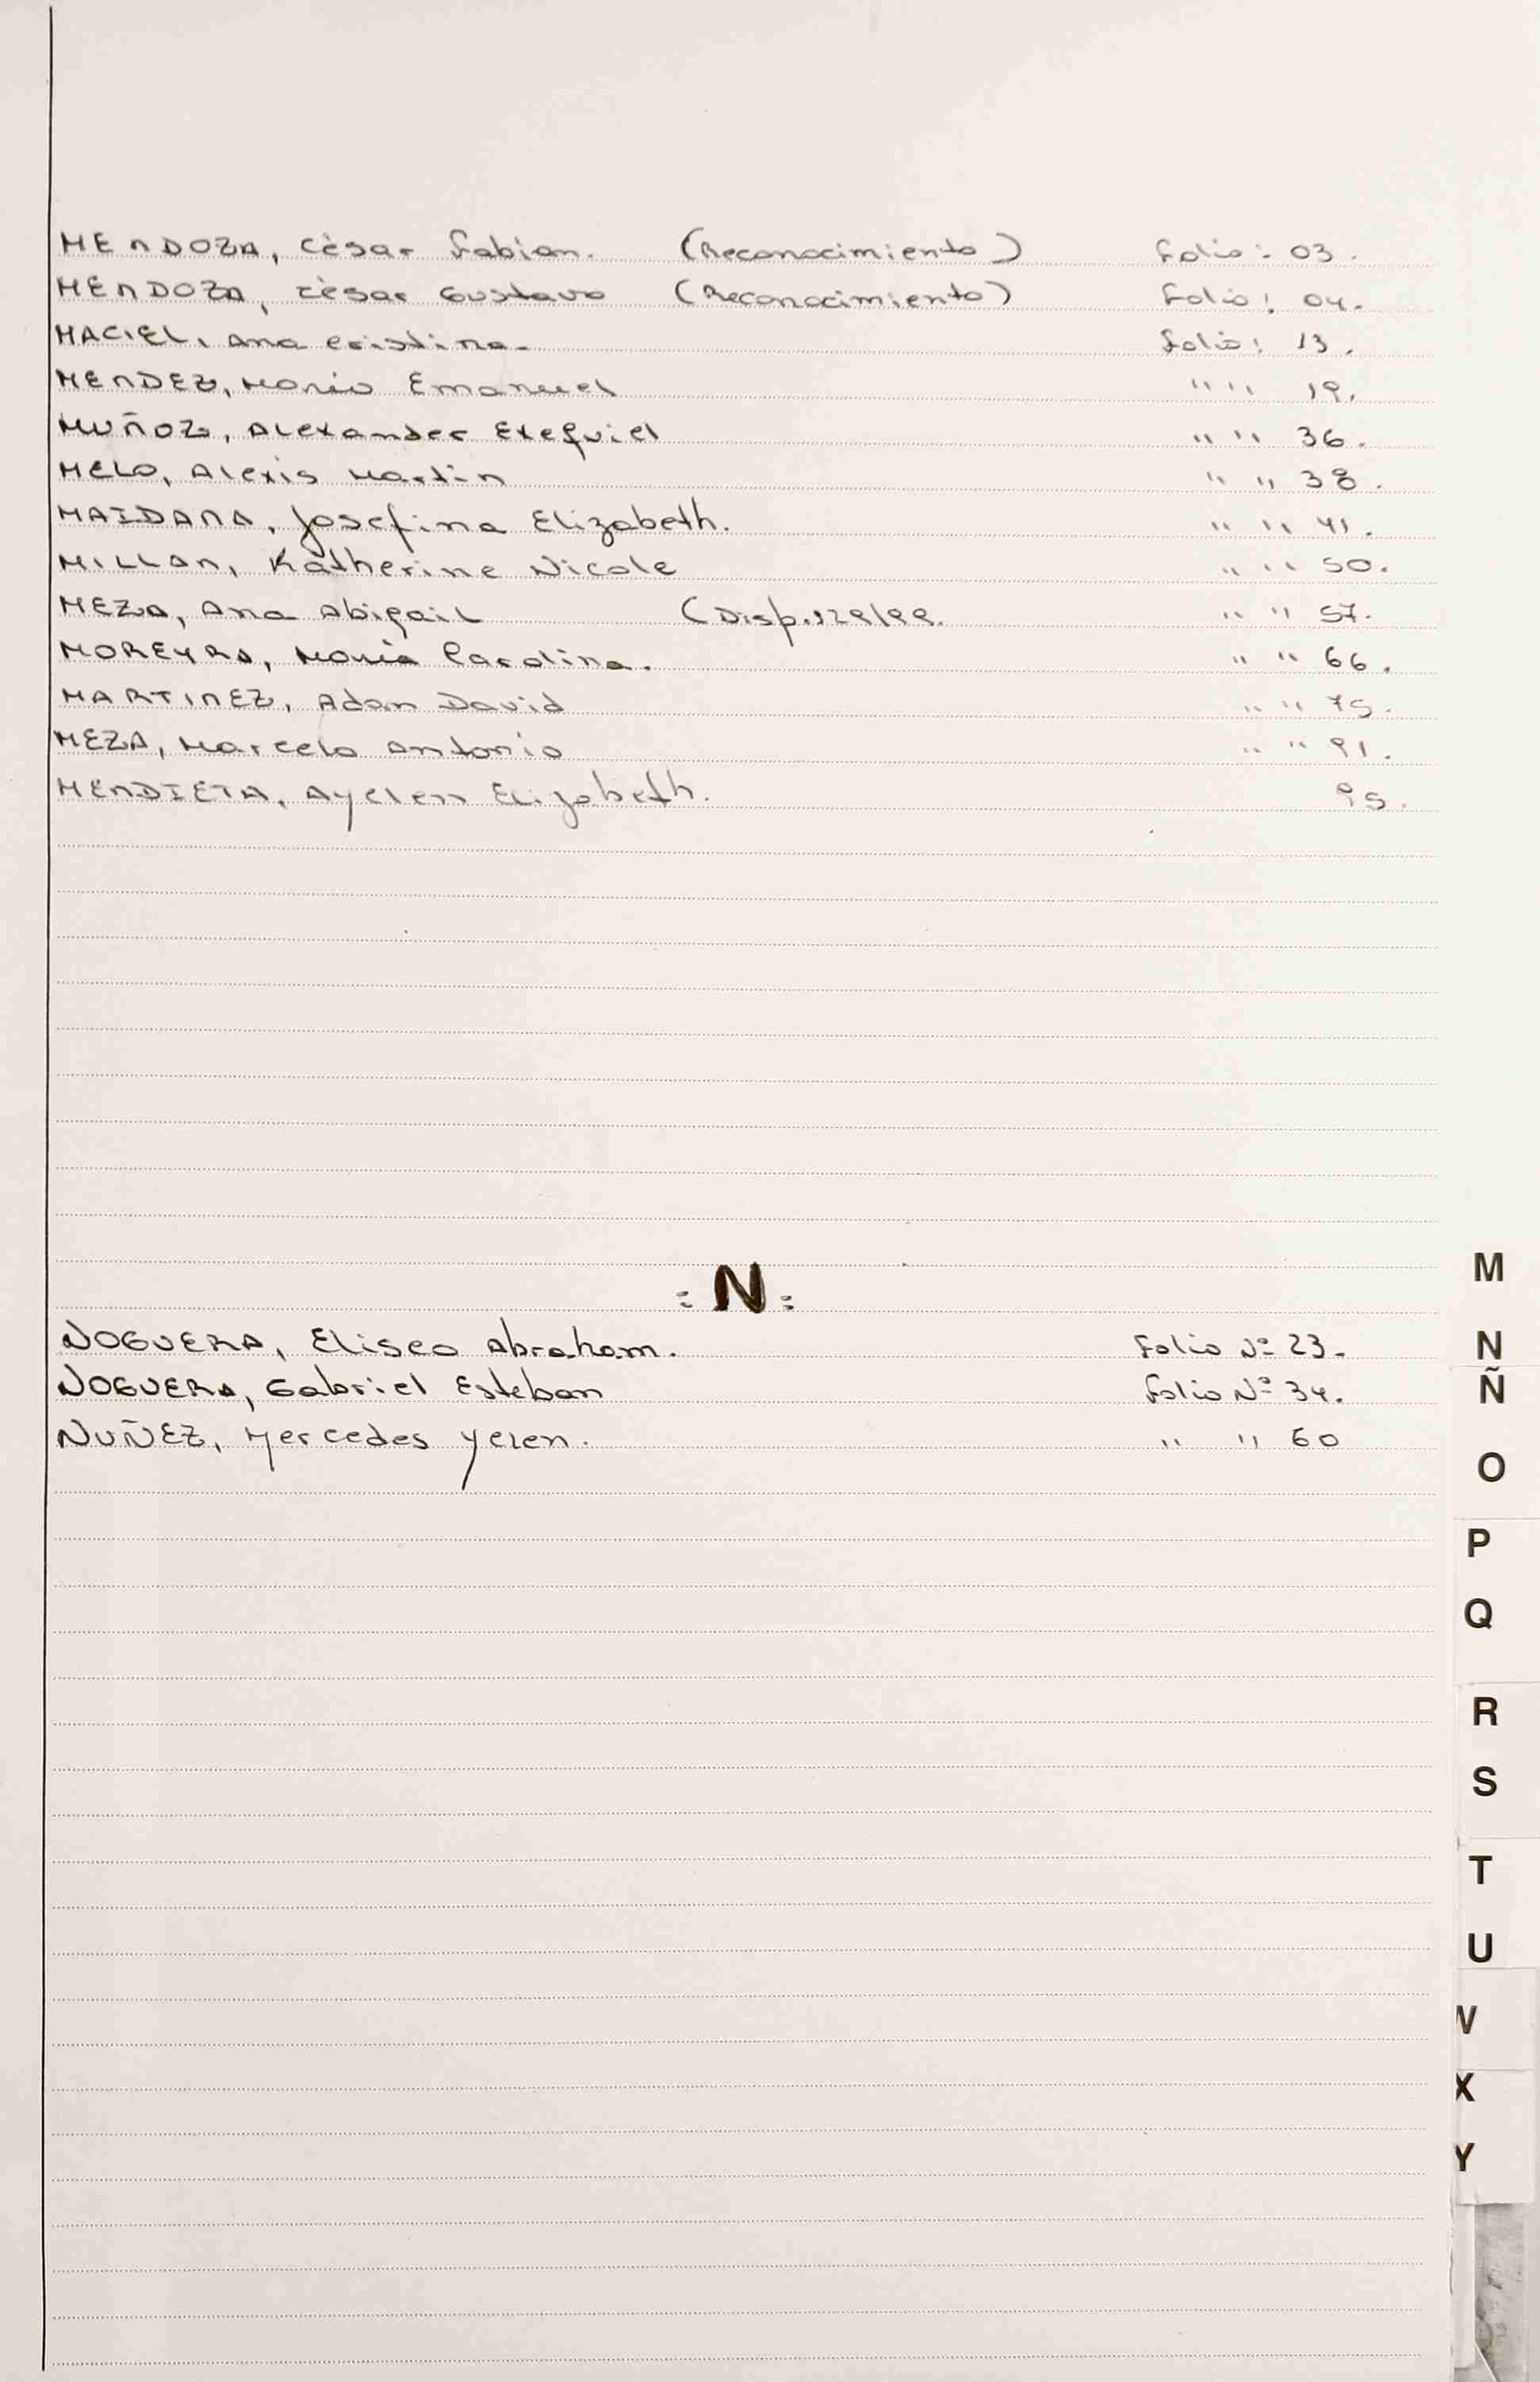 MENDOZA, Cèsar Fabian. (Reconocimiento) Folio: 03.
MENDOZA, Cèsar Gustavo (Reconocimiento) Folio: 04.
MACIEL, Ana Cristina. Folio: 13.
MENDEZ, Mario Emanuel " " 19.
MUÑOZ, Alexander Exequiel " " 36.
MELO, Alexis Martin " " 38.
MAIDANA, Josefina Elizabeth. " " 41.
MILLAN, Katherine Nicole " " 50.
MEZA, Ana Abigail (Disp. " " 57.
MOREYRA, Maria Carolina. " " 66.
MARTINEZ, Adan David " " 75.
MEZA, Marcelo Antonio " " 91.
MENDIETA, Ayelen Elizabeth. 95.
M
= N =
NOGUERA, Eliseo Abraham. Folio Nº 23.
N
NOGUERA, Gabriel Esteban Folio Nº 34.
Ñ
NUÑEZ, Mercedes Yeren. " " 60
O
P
Q
R
S
T
U
X
Y